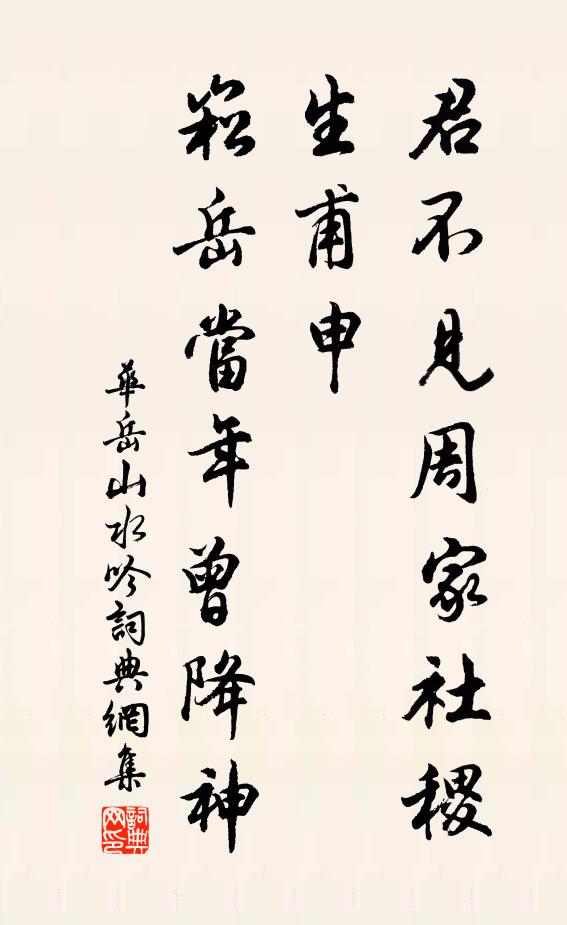 君不見周家社稷
生甫申
崧岳當年曾降神
華岳山水吟詞典網集
詞典
网印